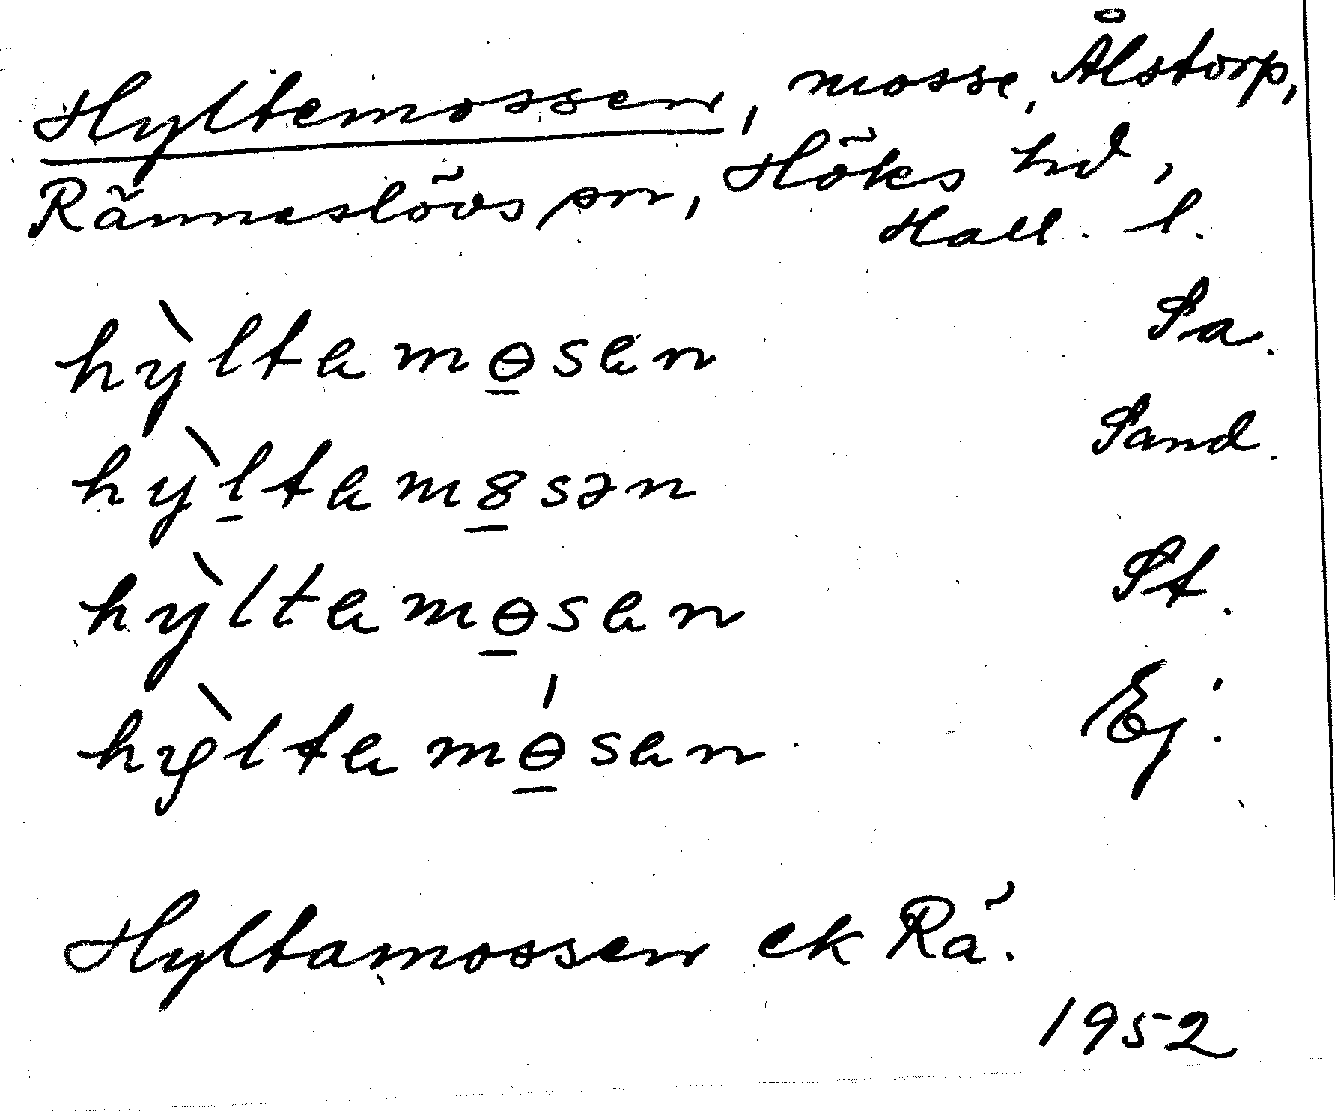 Hyltemossen, mosse, Ålstorp,
Ränneslövs sn, Höks hd,
Hall. l.
hỳltamɵ̲san Sa.
hỳl̲tam8̲sən Sand.
hỳltamɵ̲san St.
hỳltamɵ̲́san Ej.
Hyltamossen ek Rä.
1952